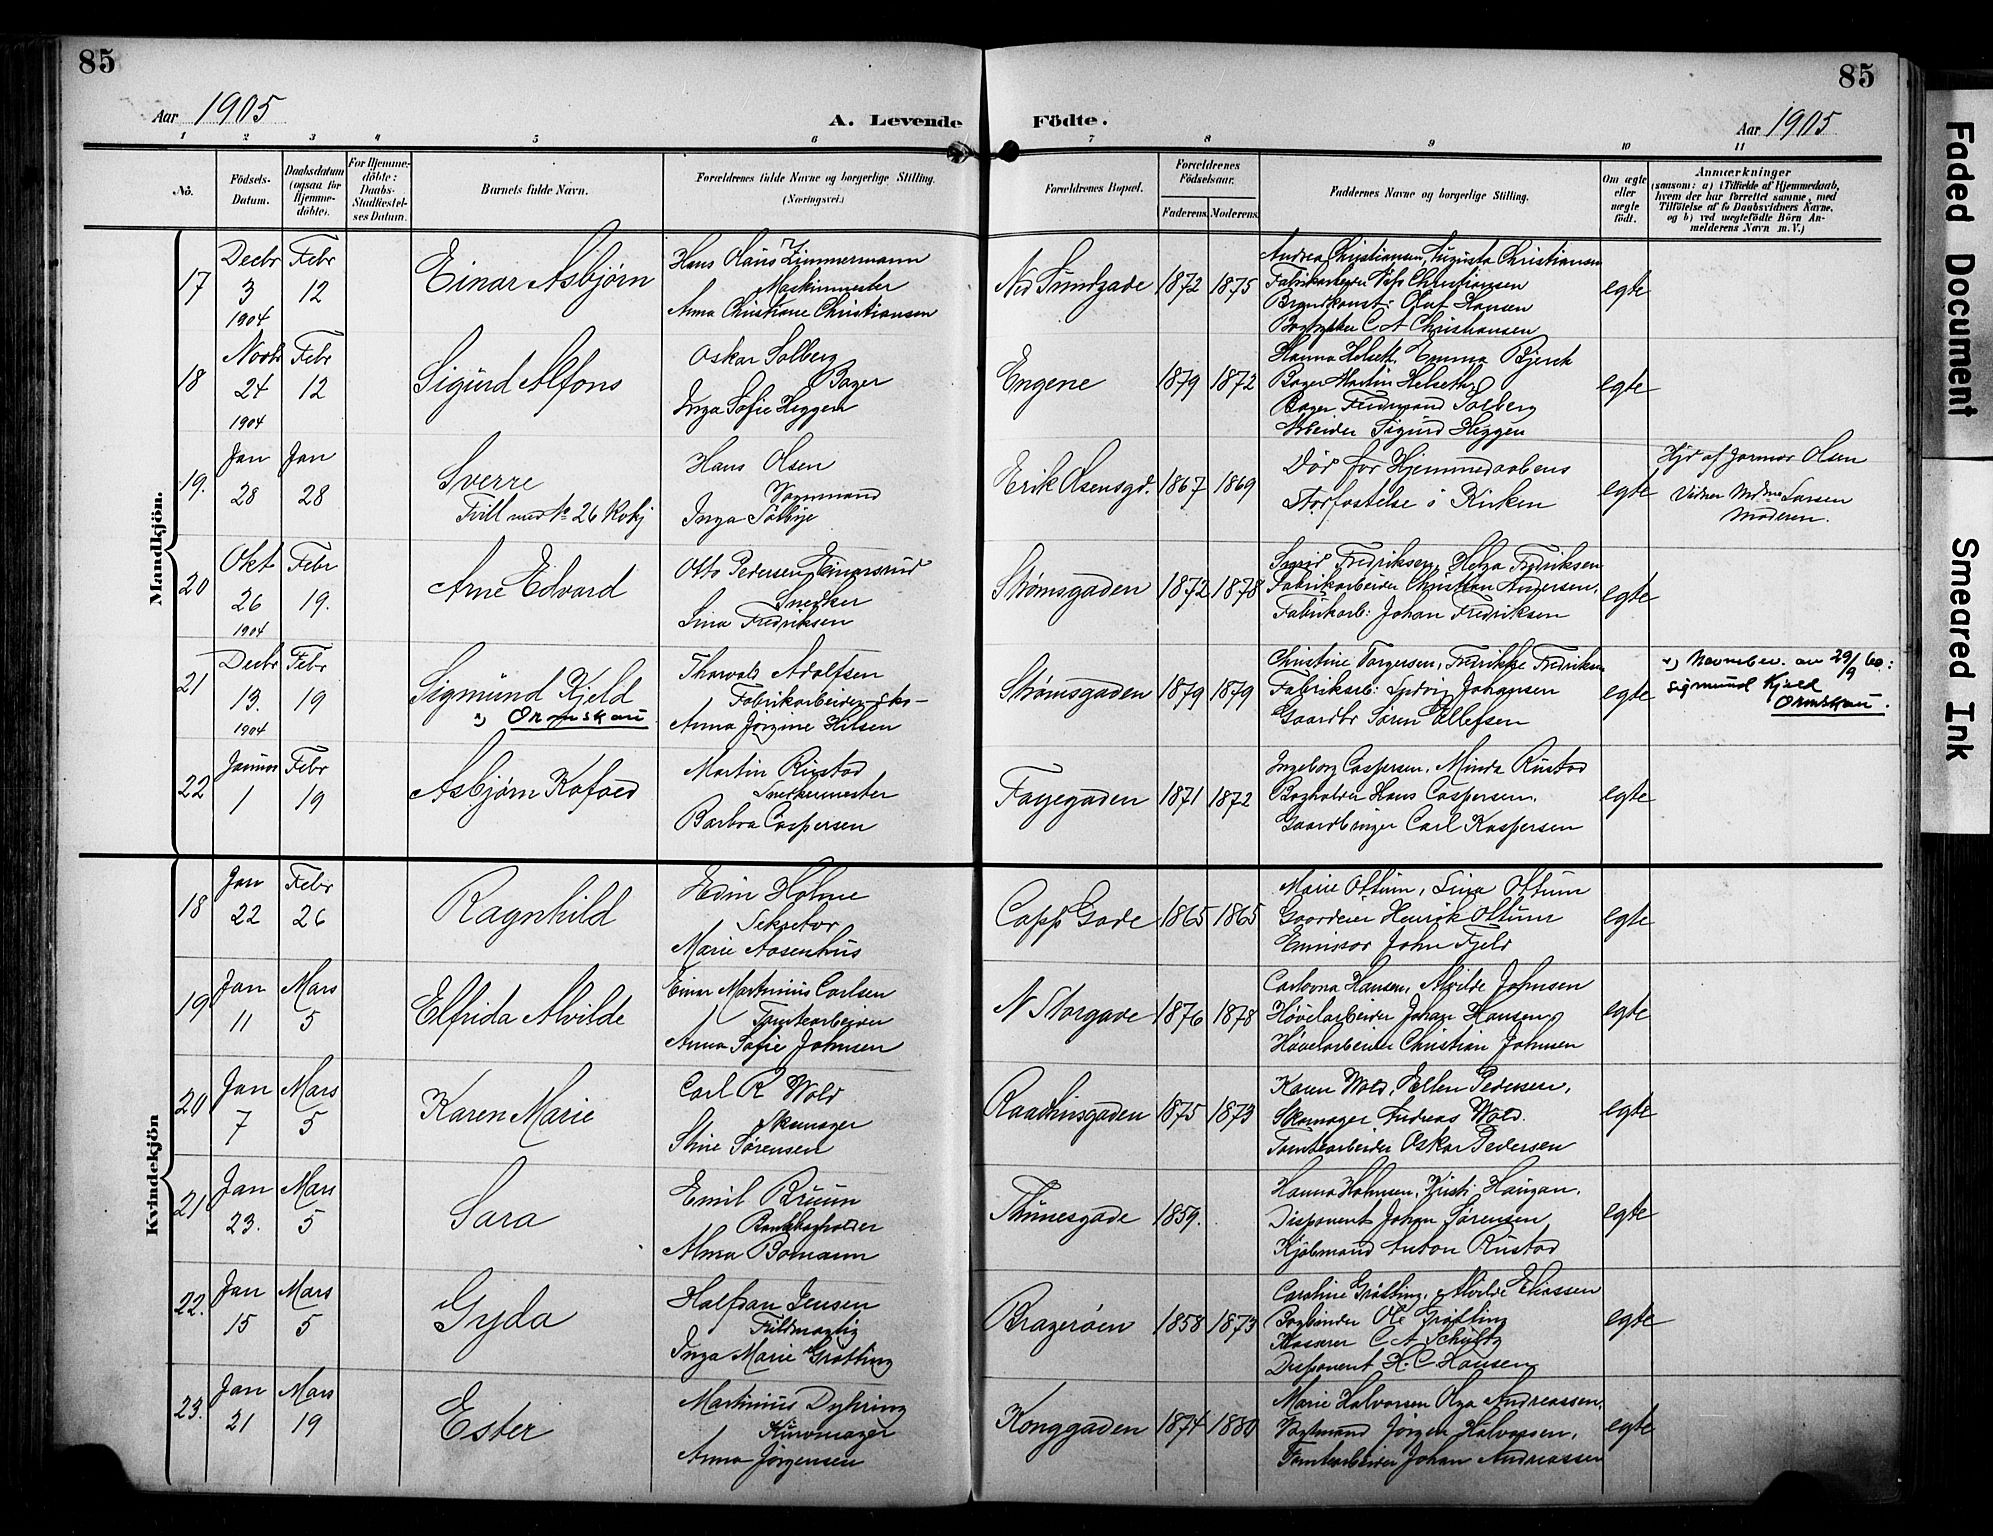 85
85
Aar 1905
A. Levende Födte.
Aar 1905
1 2 3 4 5 6 7 8 9 10 11
No.
Födsels-Datum.
Daabsdatum (ogsaa for Hjemme-döbte).
For Hjemme-döbte: Daabs-Stadfæstel-ses Datum.
Barnets fulde Navn.
Forældrenes fulde Navne og borgerlige Stilling. (Næringsvei.)
Forældrenes Bopæl.
Forældrenes Födselsaar.
Faderens. Moderens.
Faddernes Navne og borgerlige Stilling.
Om ægte eller uægte födt.
Anmærkninger
(saasom: a) i Tilfælde af Hjemmedaab, hvem der har forrettet samme, med Tilföielse af to Daabsvidners Navne, og b) ved uægtefödte Börn An-melderens Navn m. V.)
Mandkjön.
17
Decbr 3 1904
Febr 12
Einar Asbjørn
Hans Olaus Zimmermann
Maskinmester
Anna Christiane Christiansen
Ned Sundgade
1872 1875
Andrea Christiansen, Augusta Christiansen
Fabrikarbeider Christiansen
Brandkonst: Oluf Hansen
C A Christiansen
egte
18
Novb 24 1904
Febr 12
Sigurd Alfons
Oskar Solberg
Bager
Inga Sofie Heggen
Engene
1879 1872
Hanna Helseth, Emma Bjerck
Bager Martin Helseth
Bager Ferdinand Solberg
Arbeider Sigurd Heggen
egte
19.
Jan 28
Jan 28
Sverre
Tvill med No 26 Kvkj
Hans Olsen
Vognmand
Inga Solbye
Erik Olsensgd.
1867 1869
Död før Hjemmedaabens
Storfæstelse i Kirken
egte
Hjd af Jormor Olsen
Vidner Mdme Larsen
Moderen.
20
Okt 26 1904
Febr 19.
Arne Edvard
Otto Pedersen Einarsrud
Snedker
Lina Fredriksen
Strømsgaden
1872 1878
Sigrid Fredriksen, Helga Fredriksen
Fabrikarbeider Christian Andersen,
Fabrikarb: Johan Fredriksen
egte
21
Decbr 13. 1904
Febr 19
Sigmund Kjeld
x) Ormskau
Thorvald Adolfsen
Fabrikarbeider
Anna Jørgine Hilsen
Strømsgaden
1879 1879
Christine Torgersen, Fredrikke Fredriksen
Fabrikarb: Ludvig Johansen
Gaardbr Søren Ellefsen
egte
x) Navnebev. av 29/9 60:
Sigmund Kjeld
Ormskau.
22
Januar 1
Febr 19
Asbjørn Kofoed
Martin Rustad
Snekkermester
Barbra Caspersen
Fayegaden
1871 1872
Ingeborg Caspersen, Minda Rustad
Bagholder Hans Caspersen,
Gaardbruger Carl Kaspersen
egte
Kvindekjön
18
Jan 22
Febr 26
Ragnhild
Edin Holme
Sekretær
Marie Aasenhus
Capp Gade
1865 1865
Marie Ottum, Lina Ottum
Gaardeier Henrik Ottum
Emissær John Fjeld
egte
19
Jan 11
Mars 5
Elfrida Alvilde
Einar Martinius Carlsen
Tomtearbeider
Anna Sofie Johnsen
N Storgade
1876 1878
Carlovna Hansen, Alvilde Johnsen
Høvelarbeider Johan Hansen
Høvelarbeider Christian Johnsen
egte
20
Jan 7
Mars 5
Karen Marie
Carl R Wold
Skomager
Stine Sørensen
Raadhusgaden
1875 1873
Karen Wold, Ellen Pedersen,
Skomager Andreas Wold.
Tomtearbeider Oskar Pedersen
egte
21
Jan 23.
Mars 5
Sara
Emil Bruun
Bankbogholder
Alma Bomann
Thunesgade
1859.
Hanna Holmsen, Kristi Haugan,
Disponent Johan Sørensen
Kjøbmand Anton Rustad
egte
22.
Jan 15
Mars 5
Gyda
Halfdan Jensen
Fuldmægtig
Inga Marie Grøtting
Bragerøen
1858 1873
Caroline Grøtting, Alvilde Eliassen
Bogbinder Ole Grøtting
Kasserer C A Schultz
Disponent H. C Hansen
egte
23.
Jan 21
Mars 19
Ester
Martinius Dyhring
Kurvmager
Anna Jørgensen
Konggaden
1874 1880
Marie Halvorsen Olga Andreassen,
Vagtmand Jørgen Halvorsen,
Tomtearbeider Johan Andreassen
egte
Faded Document
Smeared Ink